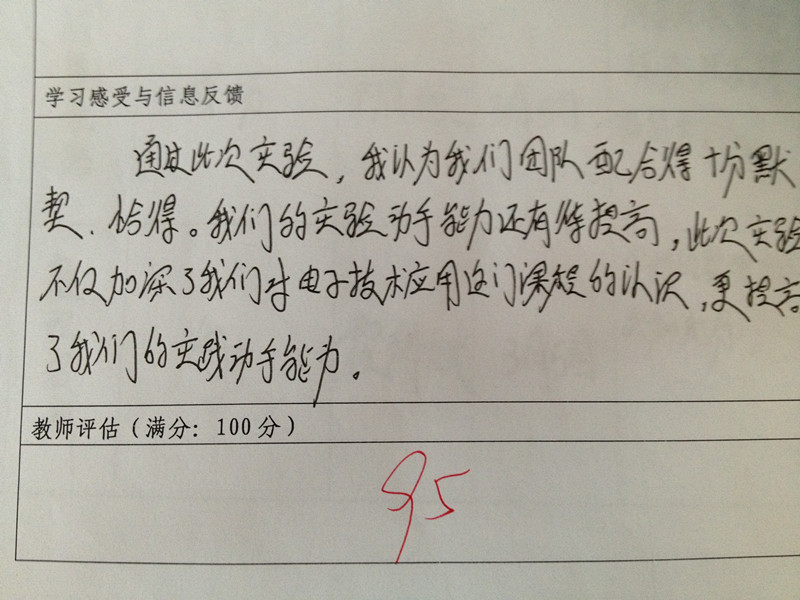 学习感受与信息反馈
通过此次实验，我认为我们团队配合得十分默
契、恰得。我们的实验动手能力还有待提高，此次实验
不仅加深了我们对电子技术应用这门课程的认识，更提高
了我们的实践动手能力。
教师评估（满分：100分）
95